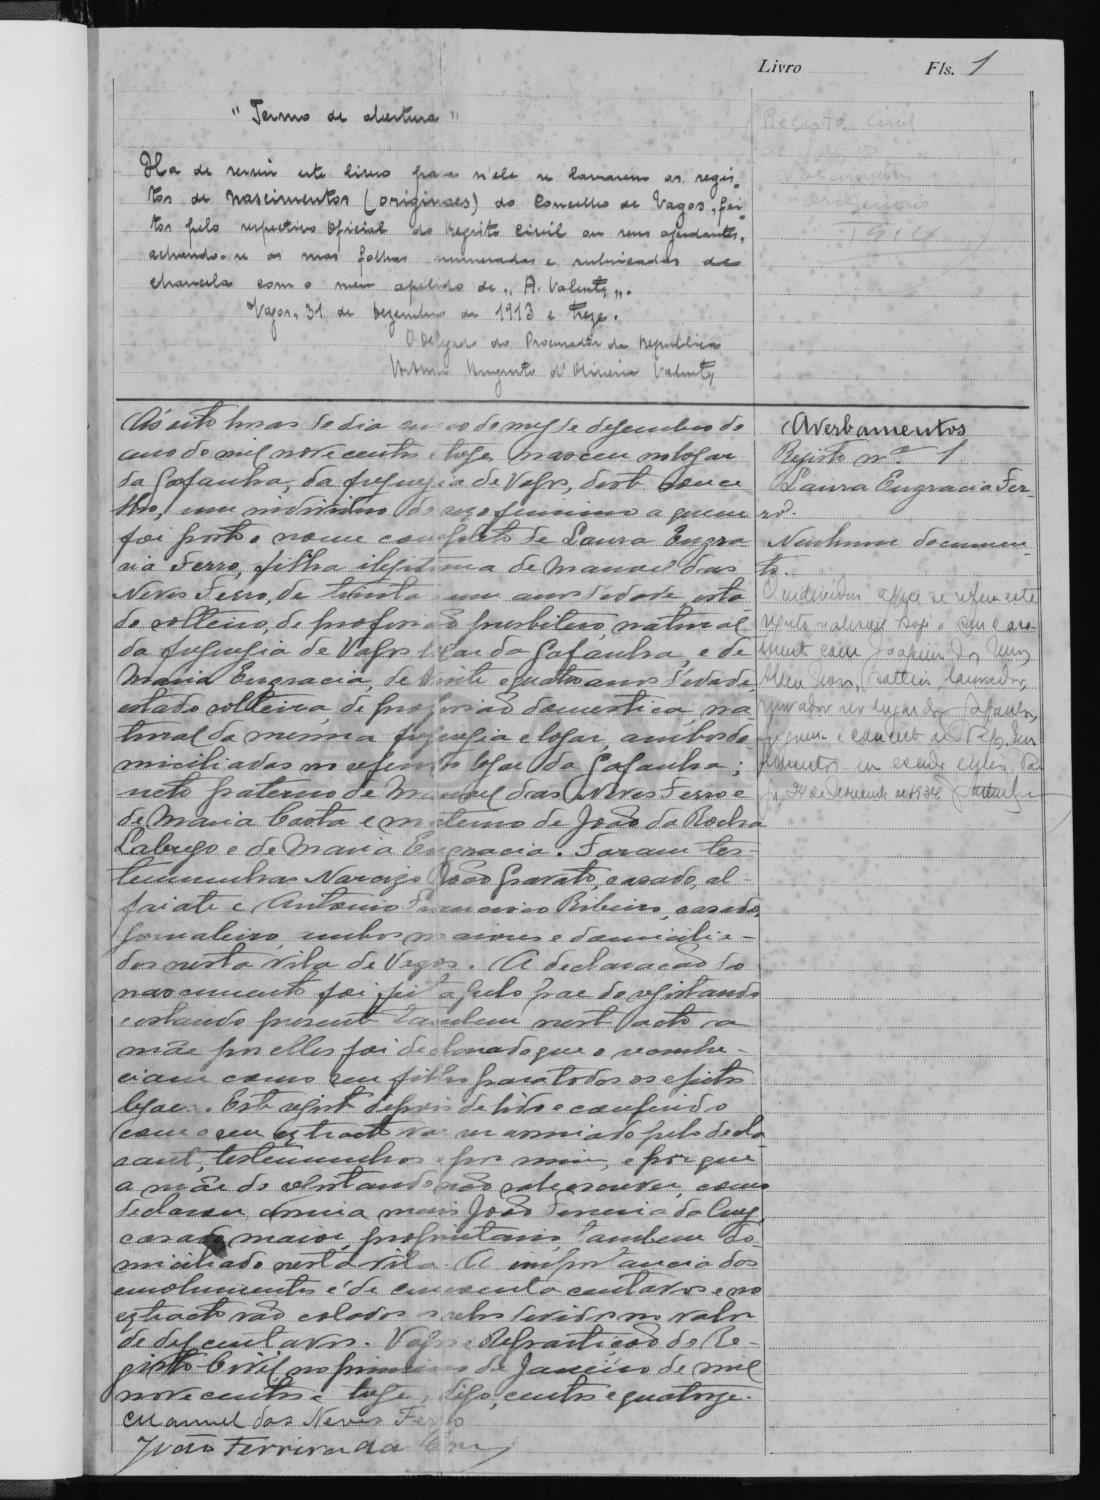 Livro Fls. 1
"Termo de abertura"
Ha de servir este livro para n'ele se lavrarem os regis-
tos de nascimentos (originaes) do Concelho de Vagos, fei-
tos pelo respectivo Oficial do Registo Civil ou seus ajudantes,
achando-se as suas folhas numeradas e rubricadas de
chancela com o meu apelido de "A. Valente".
Vagos, 31 de Dezembro de 1913 e treze.
O Delegado do Procurador da Republica
Augusto d'Oliveira Valente
Registo Civil
de Vagos
Nascimentos
Originaes
1914
Ás oito horas do dia do mez de dezembro do
ano de mil nove centos e treze, nasceu no logar
da Gafanha, da freguezia de Vagos, deste conce-
lho, um individuo do sexo feminino a quem
foi posto o nome completo de Laura Engra-
cia Ferro, filha ilegitima de Manuel das
Neves Ferro, de trinta e um anos d'edade, esta-
do solteiro, de profissão presbitero, natural
da freguezia de Vagos logar da Gafanha, e de
Maria Engracia, de vinte e quatro anos d'edade,
estado solteira, de profissão domestica, na-
tural da mesma freguezia e logar, ambos do-
miciliados no referido logar da Gafanha;
neto paterno de Manuel das Neves Ferro e
de Maria Costa e materno de João da Rocha
Labrego e de Maria Engracia. Foram tes-
temunhas João Gravato, casado, al-
faiate e Antonio Francisco Ribeiro, casado,
jornaleiro, ambos maiores e domicilia-
dos nesta vila de Vagos. A declaração do
nascimento foi feita pelo pae do registando
e estando presente tambem neste acto a
mãe por elles foi declarado que o reconhe-
ciam como seu filho para todos os efeitos
legaes. Este registo depois de lido e conferido
com o seu extracto vae ser assinado pelo decla-
rante, testemunhas e por mim, e porque
a mãe do registando não sabe escrever, como
declarou assina mais João Ferreira da Cruz,
casado, maior, proprietario, tambem do-
miciliado nesta vila. A importancia dos
emolumentos é de cincoenta centavos e no
extracto vão colados selos devidos no valor
de dez centavos. Vagos e Repartição do Re-
gisto Civil, no primeiro de Janeiro de mil
nove centos e treze, digo, centos e quatorze.
Manuel das Neves Ferro
João Ferreira da Cruz
Averbamentos
Registo nº 1
Laura Engracia Fer-
ro.
Nenhum documen-
to.
O individuo a que se refere este
registo celebrou hoje o seu casa-
mento com Joaquim
solteiro, lavrador,
morador no lugar da Gafanha,
freguesia e concelho de Vagos.